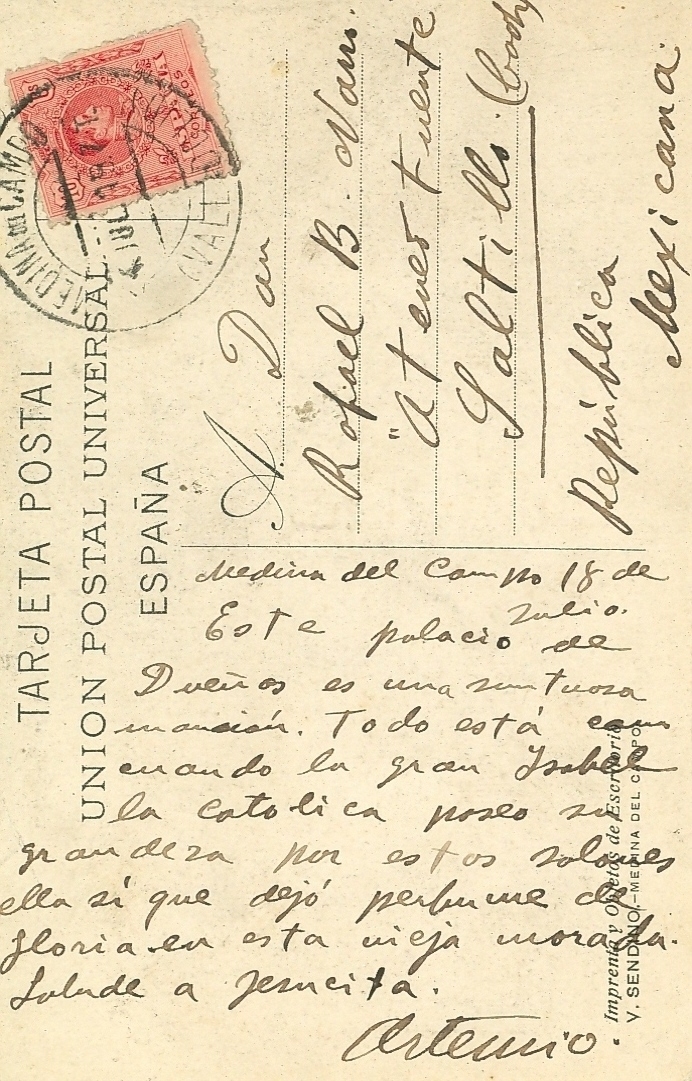 TARJETA POSTAL
UNION POSTAL UNIVERSAL
ESPAÑA
MEDINA DEL CAMPO
JUL
A. Don
Rafael B. Narro.
"Ateneo Fuente
Saltillo.
República
Mexicana.
Medina del Campo 18 de
Julio.
Este palacio de
Dueñas es una suntuosa
mansión. Todo está como
cuando la gran Isabel
la Catolica paseo su
grandeza por estos salones
ella sí que dejó perfume de
gloria en esta vieja morada.
Salude a Jesucita.
Artemio.
Imprenta y Objetos de Escritorio
V. SENDINO.–MEDINA DEL CAMPO